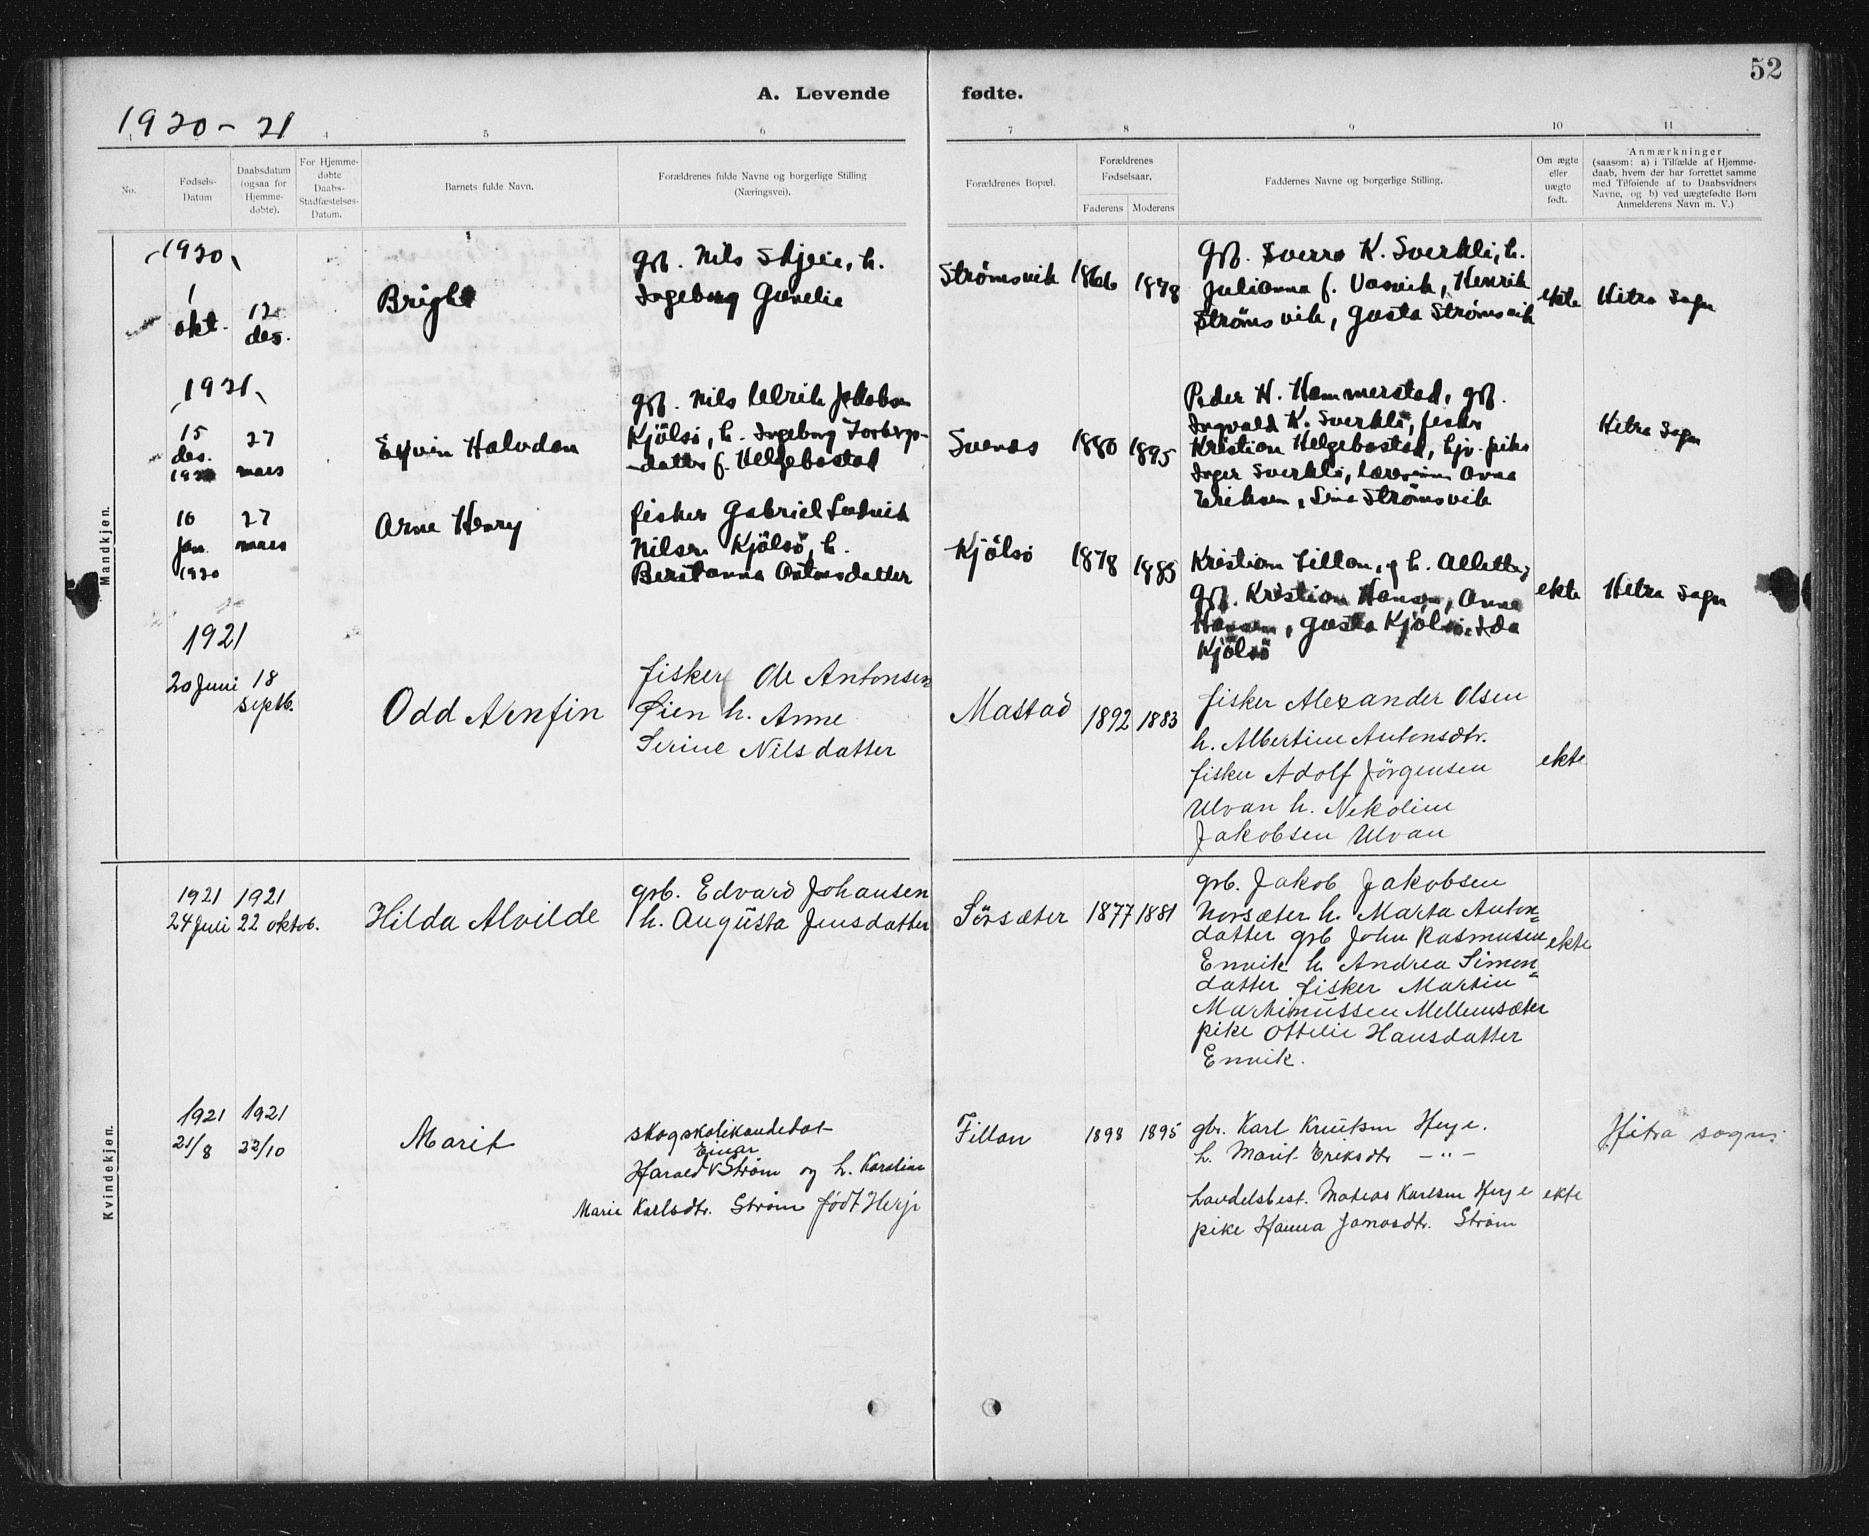 52
A. Levende fødte.
1920-21
1 4 5 6 7 8 9 10 11
No.
Fødsels-
Datum
Daabsdatum
(ogsaa for
Hjemme-
døbte).
For Hjemme-
døbte
Daabs-
Stadfæstelses-
Datum.
Barnets fulde Navn.
Forældrenes fulde Navne og borgerlige Stilling
(Næringsvei).
Forældrenes Bopæl.
Forældrenes
Fødselsaar.
Faderens Moderens
Faddernes Navne og borgerlige Stilling.
Om ægte
eller
uægte
født.
Anmærkninger
(saasom: a) i Tilfælde af Hjemme-
daab, hvem der har forrettet samme
med Tilføiende af to Daabsvidners
Navne, og b) ved uægtefødte Børn
Anmelderens Navn m. V.)
Mandkjøn.
1920
1
okt.
12
des.
Brighl
gsb. Nils Skjeie, h.
Ingeborg Gurelie
Strömsvik
1866
1878
gsb. Sverre K. Sverkli, h.
Julianna f. Vasvik, Henrik
Strömsvik, Gusta Strömsvik
ekte
Hitra Sogn
1921
15
des.
27
mars
Eyvin Halvdan
gsb. Nils Ulrik Jakobsen
Kjölsö, h. Ingeborg Torberps-
-datter f. Helgebostad
Svenäs
1880
1895
Peder H. Hammerstad, gsb.
Ingvald K. Sverkli, fisker
Kristian Helgebostad, hjv. pike
Inger Sverkli, lærerinne Anna
Eriksen, Lina Strömsvik
Hitra Sogn
16
jan.
1920
27
mars
Arne Henry
fisker Gabriel Ludvik
Nilsen Kjölsö, h.
Beritanna Antonsdatter
Kjölsö
1878
1885
Kristian Fillan, og h. Alette,
gsb. Kristian Hansen, Anna
Hansen, Gusta Kjölsö, Ida
Kjölsö
ekte
Hitra Sogn
1921
20 Juni
18
septb.
Odd Arnfin
fisker Ole Antonsen
Øien h. Anne
Serine Nilsdatter
Mastad
1892
1883
fisker Alexander Olsen
h. Albertine Antonsdtr.
fisker Adolf Jörgensen
Ulvan h. Nikoline
Jakobsen Ulvan
ekte
Kvindekjøn.
1921
24 Juli
1921
22 oktob.
Hilda Alvilde
gsb. Edvard Johansen
h. Augusta Jensdatter
Sörsæter
1877
1881
gsb. Jakob Jakobsen
Norsæter h. Marta Anton=
datter gsb John Rasmusen
Emvik h. Andrea Simon=
datter fisker Martin
Martinussen Mellemsæter
pike Ottilie Hansdatter
Emvik.
ekte
1921
21/8
1921
23/10
Marit
skogskolekandidat
Einar
Harald v Strøm og h. Karoline
Marie Karlsdtr. Strøm født Herje
Fillan
1898
1895
gbr. Karl Knutsen Herje.
h. Marit Eriksdtr — " —
handelsbest. Matias Karlsen Herje
pike Hanna Jonasdtr. Strøm
ekte
Hitra sogn